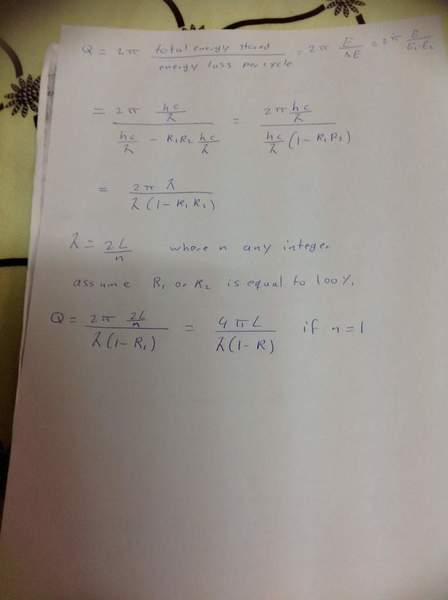 Q = 2π total energy stored / energy loss per cycle = 2π E/ΔE = 2π E/E₁-E₂
= 2π hc/λ / (hc/λ - R₁R₂ hc/λ) = 2π hc/λ / (hc/λ (1-R₁R₂))
= 2π λ / λ(1-R₁R₂)
λ = 2L/n where n any integer
assume R₁ or R₂ is equal to 100%.
Q = 2π 2L/n / λ(1-R₁) = 4πL / λ(1-R) if n=1